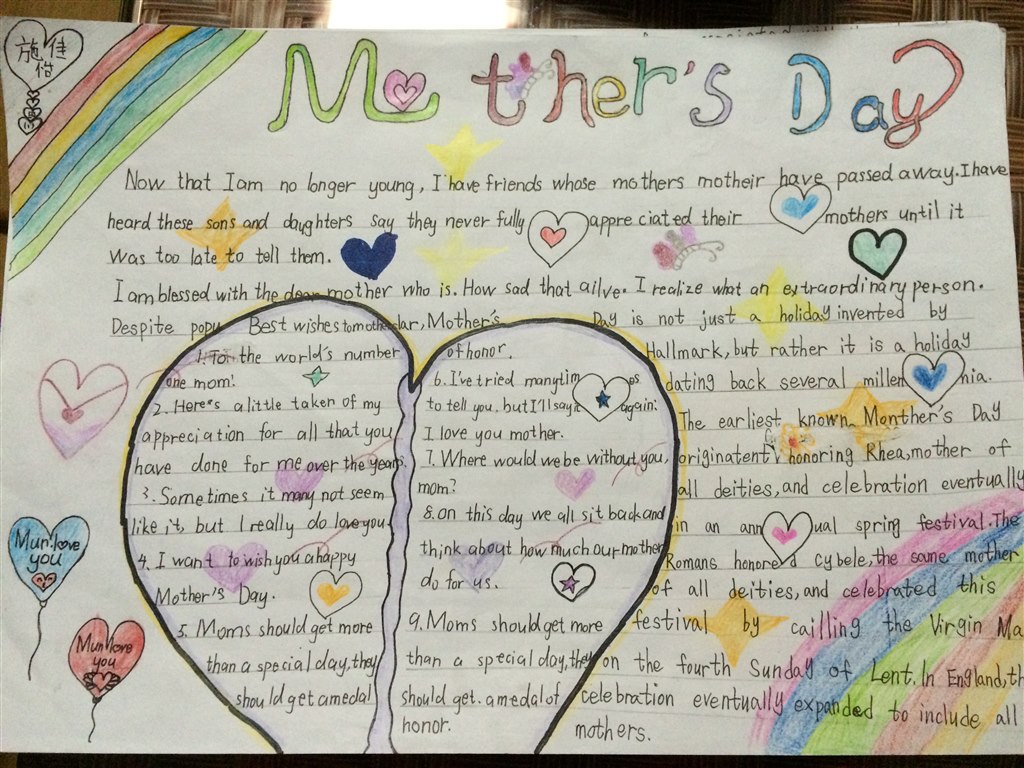 施佳
俗
Mother's Day
Now that I am no longer young, I have friends whose mothers motheir have passed away. I have
heard these sons and daughters say they never fully appreciated their mothers until it
was too late to tell them.
I am blessed with the dear mother who is. How sad that ailve. I realize what an extraordinary person.
Despite popular, Mother's Day is not just a holiday invented by
Hallmark, but rather it is a holiday
dating back several millennia.
The earliest known Monther's Day
originatent honoring Rhea, mother of
all deities, and celebration eventually
in an annual spring festival. The
Romans honored cybele, the same mother
of all deities, and celebrated this
festival by cailling the Virgin Ma
on the fourth Sunday of Lent. In England, th
celebration eventually expanded to include all
mothers.
Best wishes to mother
1. To the world's number
one mom!
2. Here's a little taken of my
appreciation for all that you
have done for me over the years.
3. Sometimes it many not seem
like it, but I really do love you.
4. I want to wish you a happy
Mother's Day.
5. Moms should get more
than a special day, they
should get a medal
of honor.
6. I've tried many times
to tell you, but I'll say it again:
I love you mother.
7. Where would we be without you,
mom?
8. on this day we all sit back and
think about how much our mother
do for us.
9. Moms should get more
than a special day, they
should get. a medal of
honor.
Mun.love
you
Mun.love
you